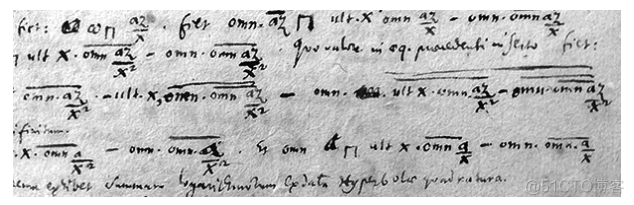 fiet: ω ⊓ az/x. fiet omn. az/x ⊓ ult. x omn az/x − omn. omn az/x
ult x. omn. az/x² − omn. omn az/x². quo valore in eq. praecedenti inserto fiet:
omn. az/x² − ult. x, omn. omn. az/x² − omn. ult x. omn. az/x² − omn. omn. az/x²
x. omn a/x² − omn. omn. a/x². Et omn a/x ⊓ ult x. omn a/x − omn. omn. a/x
exhibet summam logarithmorum ex data Hyperbolae quadratura.
@51CTO博客